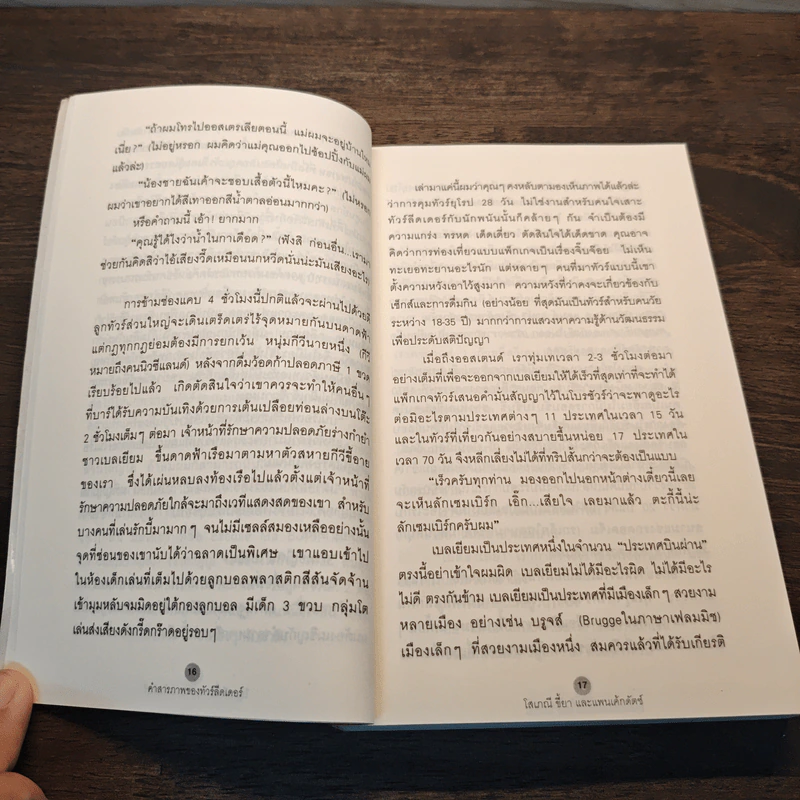 "ถ้าผมโทรไปออสเตรเลียตอนนี้ แม่ผมจะอยู่บ้านไหม
เนี่ย?" (ไม่อยู่หรอก ผมคิดว่าแม่คุณออกไปช้อปปิ้งกับแม่ผม
แล้วล่ะ)
"น้องชายฉันเค้าจะชอบเสื้อตัวนี้ไหมคะ?" (ไม่หรอก
ผมว่าเขาอยากได้สีเทาออกสีน้ำตาลอ่อนมากกว่า)
หรือคำถามนี้ เอ้า! ยากมาก
"คุณรู้ได้ไงว่าน้ำในกาเดือด?" (ฟังสิ ก่อนอื่น...เรามา
ช่วยกันคิดสิว่าไอ้เสียงวี้ดเหมือนนกหวีดนั่นน่ะมันเสียงอะไร
การข้ามช่องแคบ 4 ชั่วโมงนี้ปกติแล้วจะผ่านไปด้วยดี
ลูกทัวร์ส่วนใหญ่จะเดินเตร็ดเตร่ไร้จุดหมายกันบนดาดฟ้า
แต่กฎทุกกฎย่อมต้องมีการยกเว้น หนุ่มกีวีนายหนึ่ง (กีวี
หมายถึงคนนิวซีแลนด์) หลังจากดื่มว้อดก้าปลอดภาษี 1 ขวด
เรียบร้อยไปแล้ว เกิดตัดสินใจว่าเขาควรจะทำให้คนอื่นๆ
ที่บาร์ได้รับความบันเทิงด้วยการเต้นเปลือยท่อนล่างบนโต๊ะ
2 ชั่วโมงเต็มๆ ต่อมา เจ้าหน้าที่รักษาความปลอดภัยร่างกำยำ
ชาวเบลเยียม ขึ้นดาดฟ้าเรือมาตามหาตัวสหายกีวีขี้อาย
ของเรา ซึ่งได้เผ่นหลบลงท้องเรือไปแล้วตั้งแต่เจ้าหน้าที่
รักษาความปลอดภัยใกล้จะมาถึงเวทีแสดงสดของเขา สำหรับ
บางคนที่เล่นรักบี้มามากๆ จนไม่มีเซลล์สมองเหลืออย่างนั้น
จุดที่ซ่อนของเขานับได้ว่าฉลาดเป็นพิเศษ เขาแอบเข้าไป
ในห้องเด็กเล่นที่เต็มไปด้วยลูกบอลพลาสติกสีสันจัดจ้าน
เข้ามุมหลับจมมิดอยู่ใต้กองลูกบอล มีเด็ก 3 ขวบ กลุ่มโต
เล่นส่งเสียงดังกรี๊ดกร๊าดอยู่รอบๆ
16
คำสารภาพของทัวร์ลีดเดอร์
เล่ามาแค่นี้ผมว่าคุณๆ คงหลับตามองเห็นภาพได้แล้วล่ะ
ว่าการคุมทัวร์ยุโรป 28 วัน ไม่ใช่งานสำหรับคนใจเสาะ
ทัวร์ลีดเดอร์กับนักพนันนั้นก็คล้ายๆ กัน จำเป็นต้องมี
ความแกร่ง ทรหด เด็ดเดี่ยว ตัดสินใจได้เด็ดขาด คุณอาจ
คิดว่าการท่องเที่ยวแบบแพ็กเกจเป็นเรื่องจิ๊บจ๊อย ไม่เห็น
ทะเยอทะยานอะไรนัก แต่หลายๆ คนที่มาทัวร์แบบนี้เขา
ตั้งความหวังเอาไว้สูงมาก ความหวังที่ว่าคงจะเกี่ยวข้องกับ
เซ็กส์และการดื่มกิน (อย่างน้อย ที่สุดมันเป็นทัวร์สำหรับคนวัย
ระหว่าง 18-35 ปี) มากกว่าการแสวงหาความรู้ด้านวัฒนธรรม
เพื่อประดับสติปัญญา
เมื่อถึงออสเตนด์ เราทุ่มเทเวลา 2-3 ชั่วโมงต่อมา
อย่างเต็มที่เพื่อจะออกจากเบลเยียมให้ได้เร็วที่สุดเท่าที่จะทำได้
แพ็กเกจทัวร์เสนอคำมั่นสัญญาไว้ในโบรชัวร์ว่าจะพาดูอะไร
ต่อมิอะไรตามประเทศต่างๆ 11 ประเทศในเวลา 15 วัน
และในทัวร์ที่เที่ยวกันอย่างสบายขึ้นหน่อย 17 ประเทศใน
เวลา 70 วัน จึงหลีกเลี่ยงไม่ได้ที่ทริปสั้นกว่าจะต้องเป็นแบบ
"เร็วครับทุกท่าน มองออกไปนอกหน้าต่างเดี๋ยวนี้เลย
จะเห็นลักเซมเบิร์ก เอิ๊ก...เสียใจ เลยมาแล้ว ตะกี้นี้น่ะ
ลักเซมเบิร์กครับผม"
เบลเยียมเป็นประเทศหนึ่งในจำนวน "ประเทศบินผ่าน"
ตรงนี้อย่าเข้าใจผมผิด เบลเยียมไม่ได้มีอะไรผิด ไม่ได้มีอะไร
ไม่ดี ตรงกันข้าม เบลเยียมเป็นประเทศที่มีเมืองเล็กๆ สวยงาม
หลายเมือง อย่างเช่น บรูจส์ (Bruggeในภาษาเฟลมมิช)
เมืองเล็กๆ ที่สวยงามเมืองหนึ่ง สมควรแล้วที่ได้รับเกียรติ
17
โสเภณี ชี้ยา และแพนเค้กดัตช์